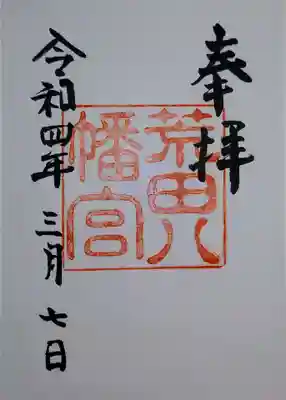 奉拝
荒田八
幡宮
令和四年 三月 七日